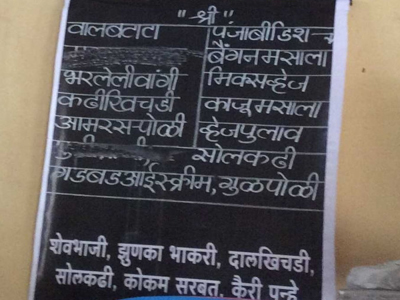 "श्री"
वालबतत पंजाबीडिश→
बैंगनमसाला
भरलेलीवांगी मिक्सव्हेज
कढीखिचडी काजूमसाला
आमरस-पोळी व्हेजपुलाव
सोलकढी
गडबडआईस्क्रीम, गुळपोळी
शेवभाजी, झुणका भाकरी, दालखिचडी,
सोलकढी, कोकम सरबत, कैरी पन्हे